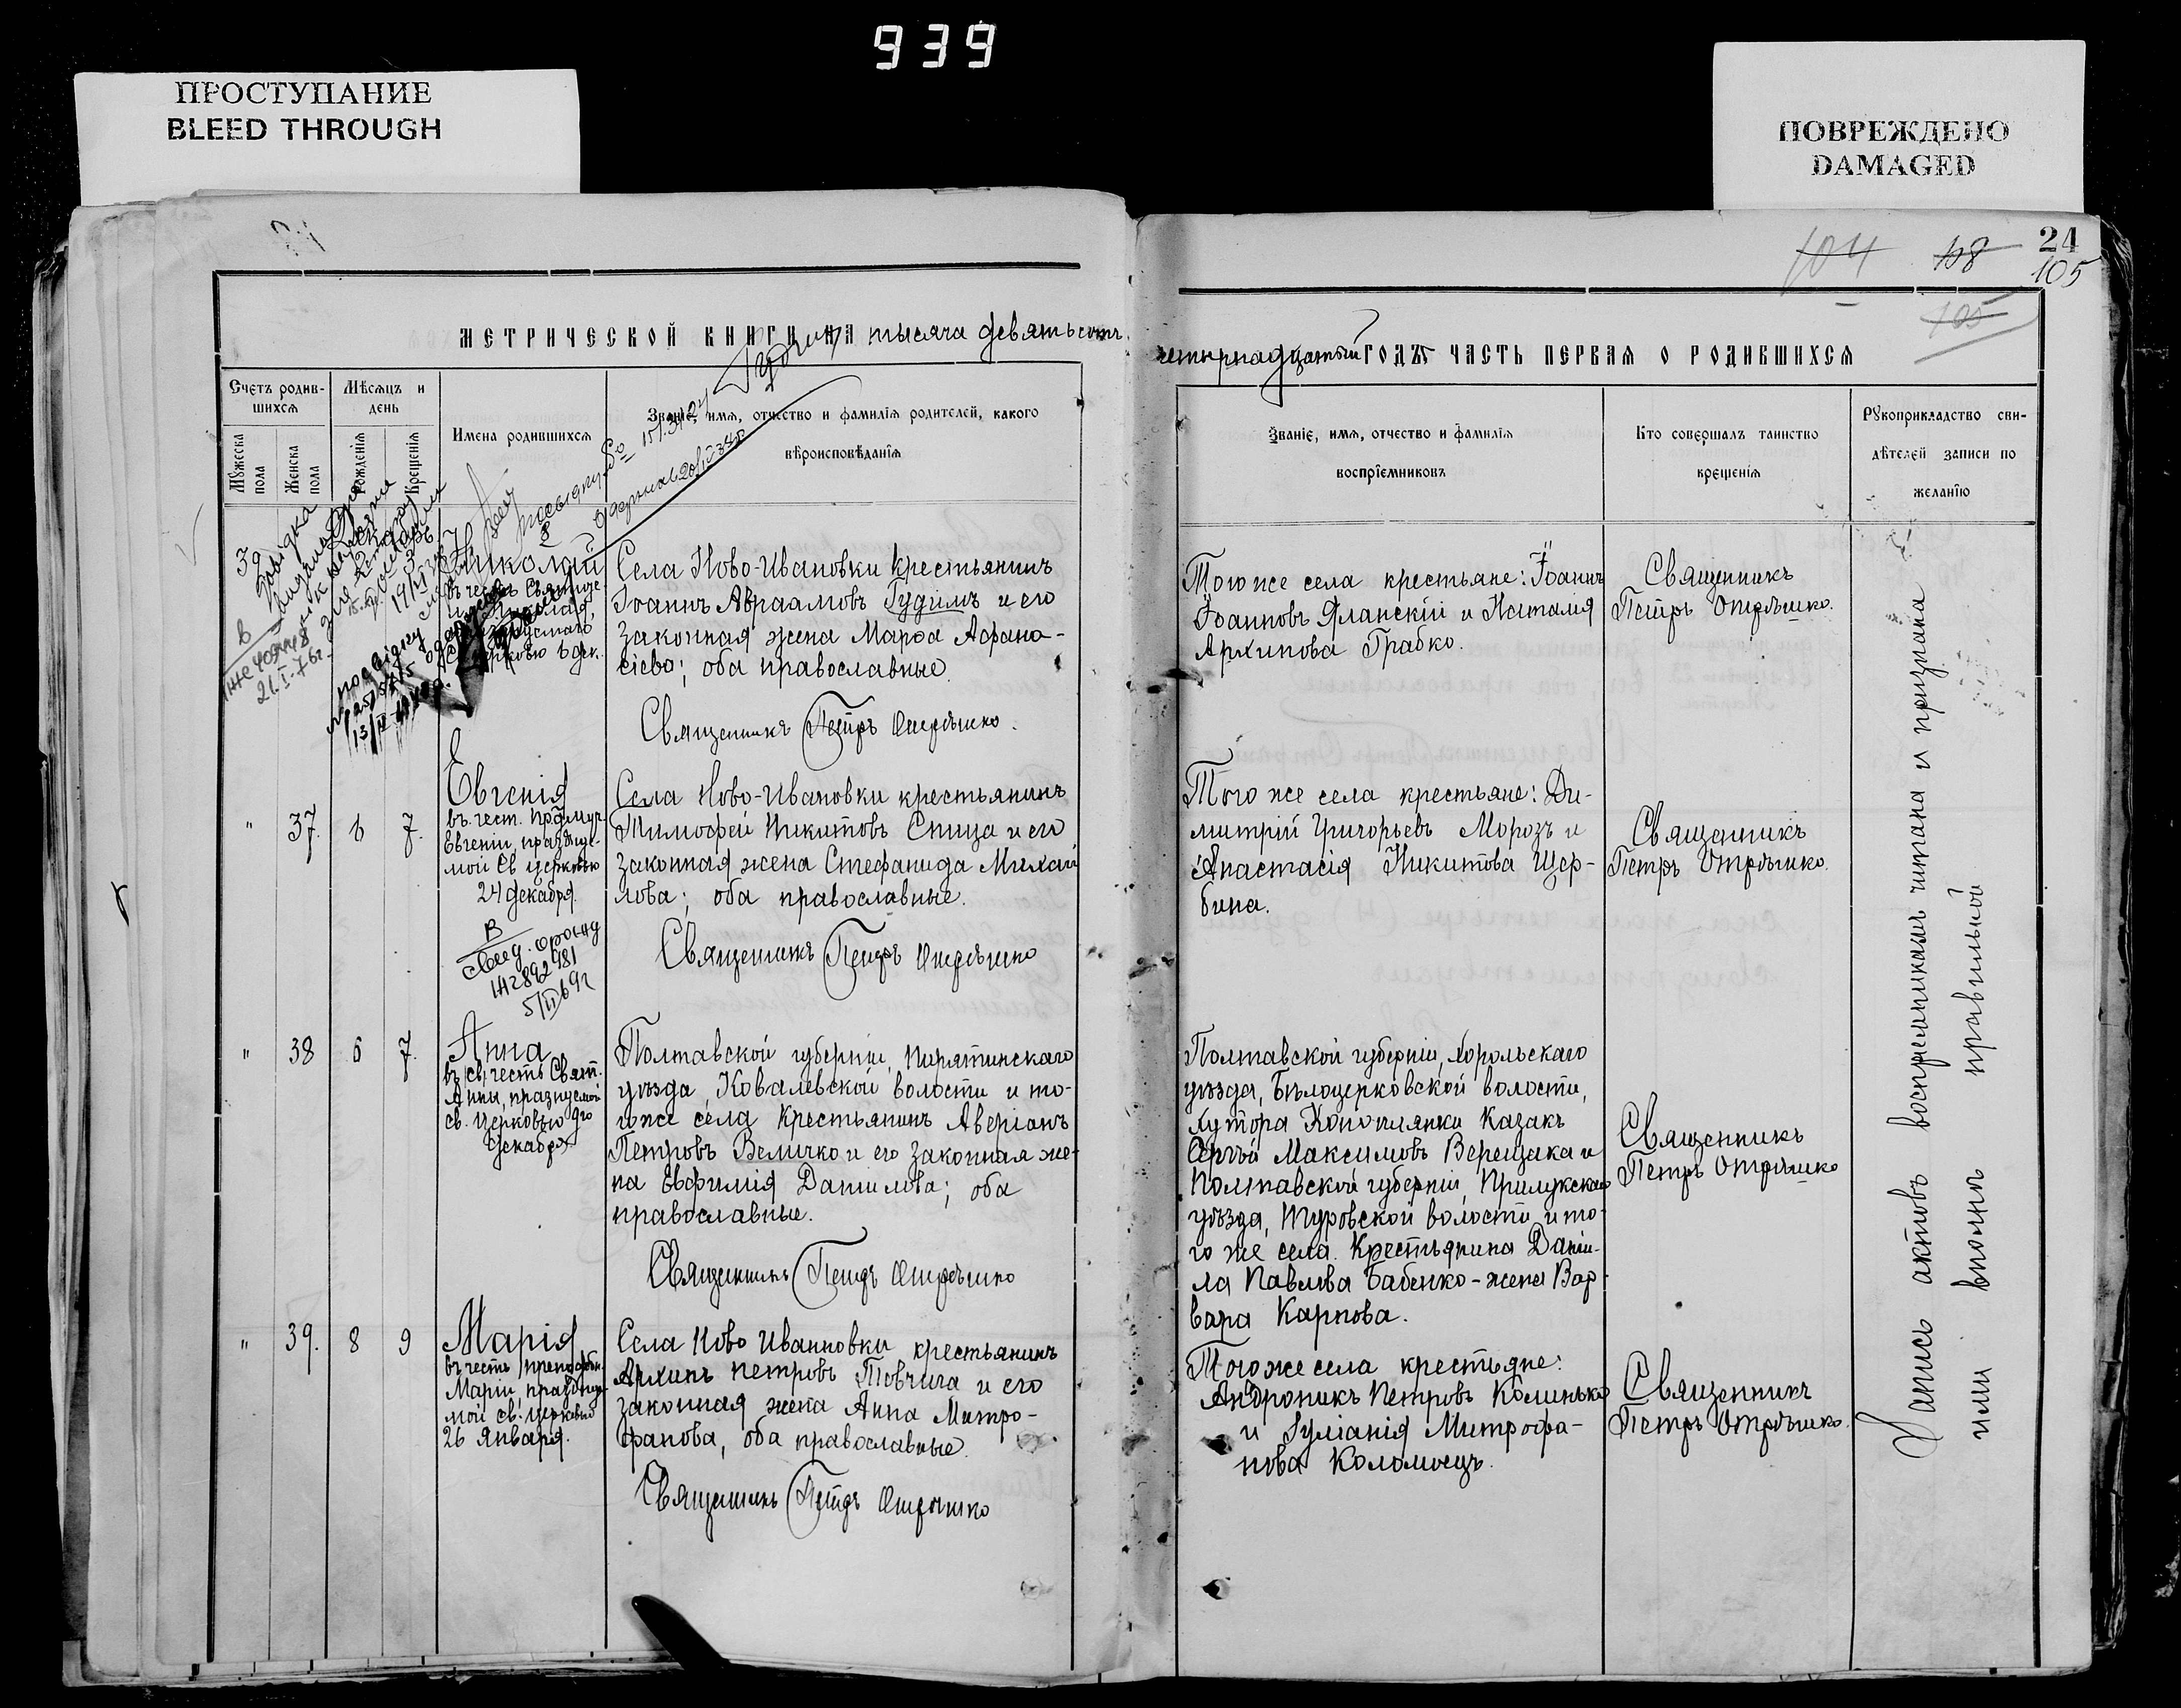 939
ПРОСТУПАНИЕ
BLEED THROUGH
ПОВРЕЖДЕНО
DAMAGED
104 108 24
105
105
МЕТРИЧЕСКОЙ КНИГИ НА тысяча девятьсотъ
четырнадцатый ГОДЪ ЧАСТЬ ПЕРВАЯ О РОДИВШИХСЯ
Счетъ родив-
шихся
Мѣсяцъ и
день
Мужеска
пола
Женска
пола
Рожденія
Крещенія
Имена родившихся
Званіе, имя, отчество и фамилія родителей, какого
вѣроисповѣданія
Званіе, имя, отчество и фамилія
воспріемниковъ
Кто совершалъ таинство
крещенія
Рукоприкладство сви-
дѣтелей записи по
желанію
Николай
Села Ново-Ивановки крестьянинъ
Іоаннъ Авраамовъ Гудимъ и его
законная жена Марѳа Афана-
сіева; оба православные.
Священникъ Петръ Отрѣшко.
Того же села крестьяне: Іоаннъ
Іоанновъ Яланскій и Наталія
Архипова Грабко.
Священникъ
Петръ Отрѣшко.
" 37. 6 7.
Евгенія
въ чест. Прпмуч.
Евгеніи, празднуе-
мой Св церковью
24 декабря.
Села Ново-Ивановки крестьянинъ
Тимофей Никитовъ Спица и его
законная жена Стефанида Михай
лова; оба православные.
Священникъ Петръ Отрѣшко
Того же села крестьяне: Ди-
митрій Григорьевъ Морозъ и
Анастасія Никитова Щер-
бина.
Священникъ
Петръ Отрѣшко.
В
142892
" 38 6 7.
Анна
въ св. честь Свят.
Анны, празнуемой
св. Церковью 9го
Декабря
Полтавской губерніи, Пирятинскаго
уѣзда, Ковалевской волости и то-
гоже села крестьянинъ Аверіанъ
Петровъ Величко и его законная же-
на Евфимія Данилова; оба
православные.
Священникъ Петръ Отрѣшко
Полтавской губерніи, Хорольскаго
уѣзда, Бѣлоцерковской волости,
хутора Коноплянки казакъ
Сергѣй Максимовъ Верещака и
Полтавской губерніи, Прилукскаго
уѣзда, Журовской волости и то-
го же села Крестьянина Дании-
ла Павлова Бабенко - жена Вар-
вара Карпова.
Священникъ
Петръ Отрѣшко
" 39. 8 9
Марія
въ честь преподобн.
Маріи, празднуе-
мой св. церковью
26 января.
Села Ново Ивановки крестьянинъ
Архипъ Петровъ Товчига и его
законная жена Анна Митро-
фанова, оба православные.
Священникъ Петръ Отрѣшко
Того же села крестьяне:
Андроникъ Петровъ Калинько
и Іуліанія Митрофа-
нова Коломоецъ.
Священникъ
Петръ Отрѣшко.
Запись актовъ воспріемникамъ читана и признана
ими вполнѣ правильной